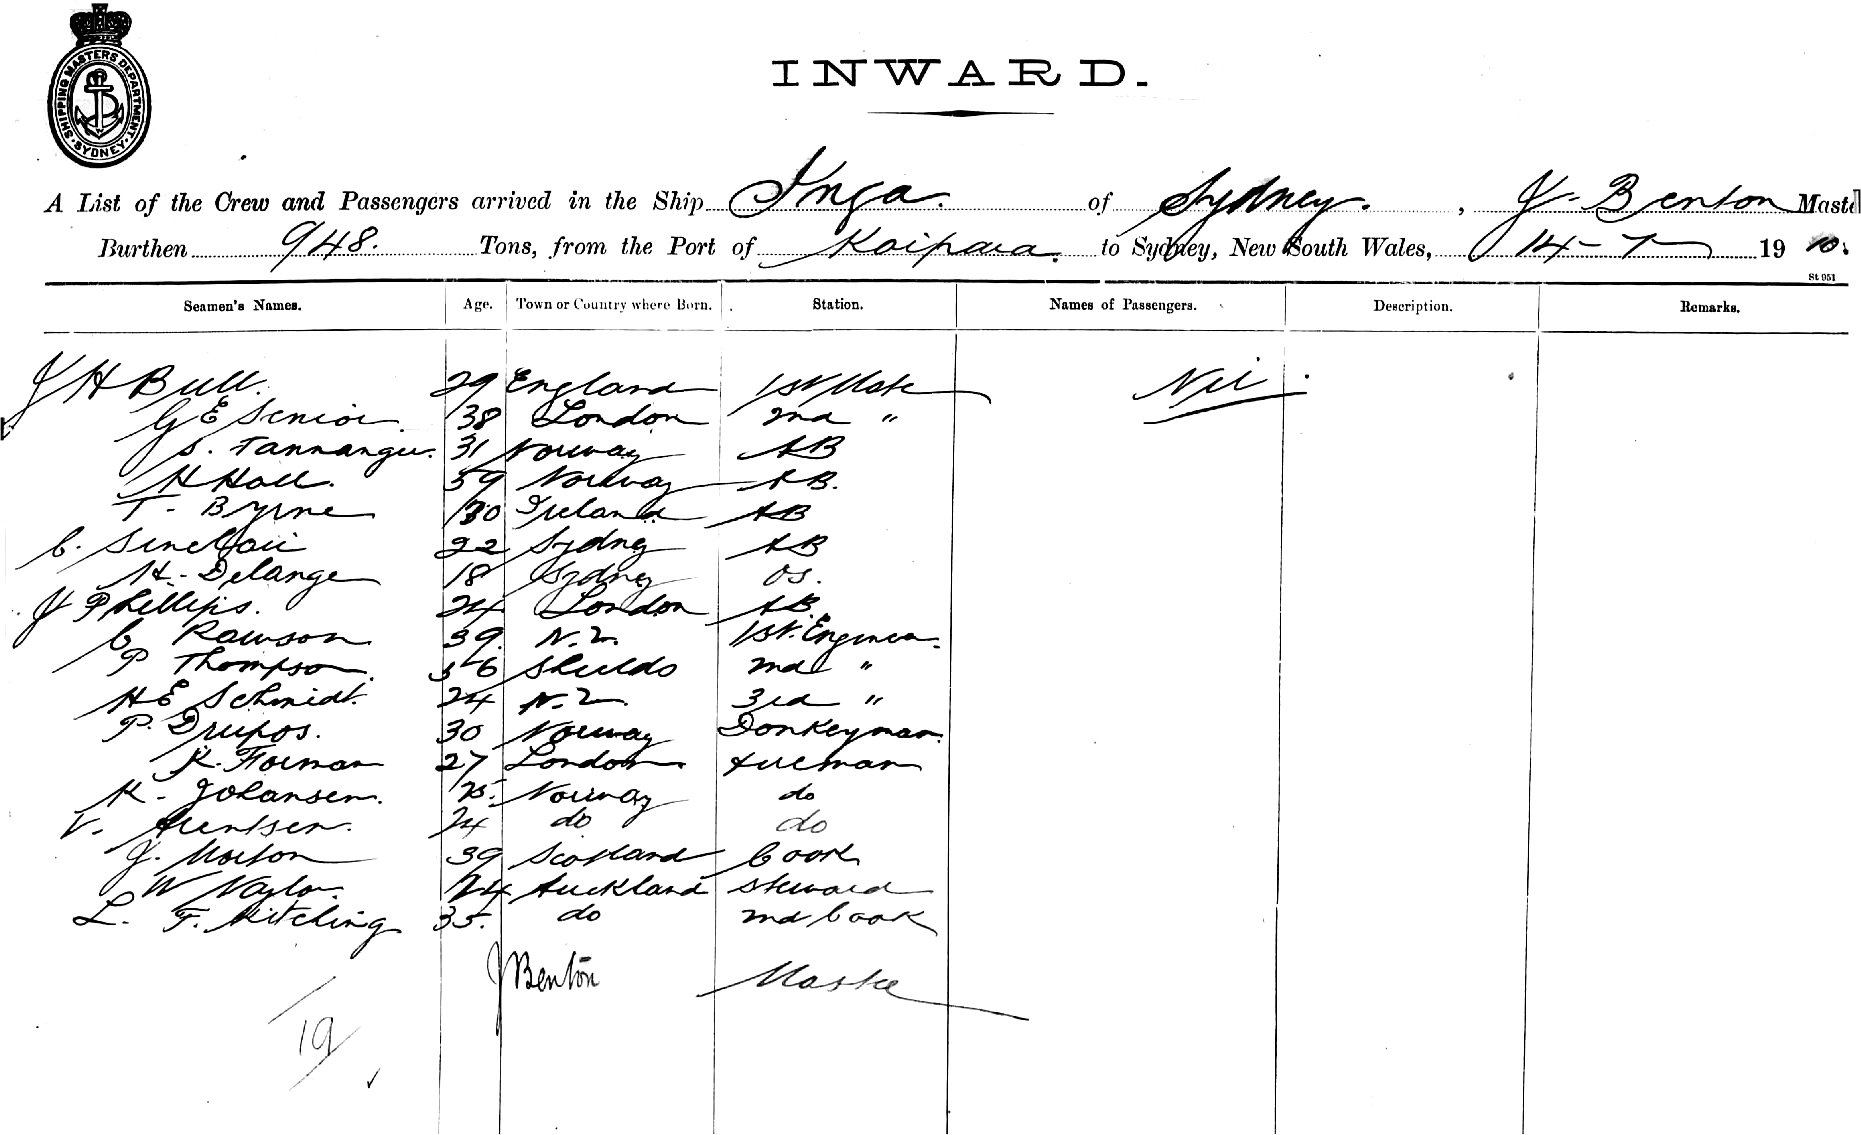 SHIPPING MASTERS DEPARTMENT
SYDNEY
INWARD.
A List of the Crew and Passengers arrived in the Ship Inga. of Sydney. , J. Benton Maste
Burthen 948. Tons, from the Port of Kaipara. to Sydney, New South Wales, 14-7 1910.
St 951
Seamen's Names. Age. Town or Country where Born. Station. Names of Passengers. Description. Remarks.
J H Bull. 29 England 1st Mate Nil
G E Senior. 38 London 2nd "
S. 31 Norway AB
H Hall. 59 Norway AB.
T. Byrne 30 Ireland AB
C. Sinclair 22 Sydney AB
H. Delange 18 Sydney OS.
J Phillips. 24 London AB.
C Rawson 39. N.Z. 1st. Engineer.
P Thompson. 56 Shields 2nd "
H E Schmidt. 24 N.Z. 3rd "
P. Drupos. 30 Norway Donkeyman.
K. Forman 27 London. Fireman
K. Johansen. 25. Norway do
V. 24 do do
J. Morton 39 Scotland Cook
W Naylor. 24 Auckland Steward
L. F. Kitching 35. do 2nd Cook
J Benton Master
19